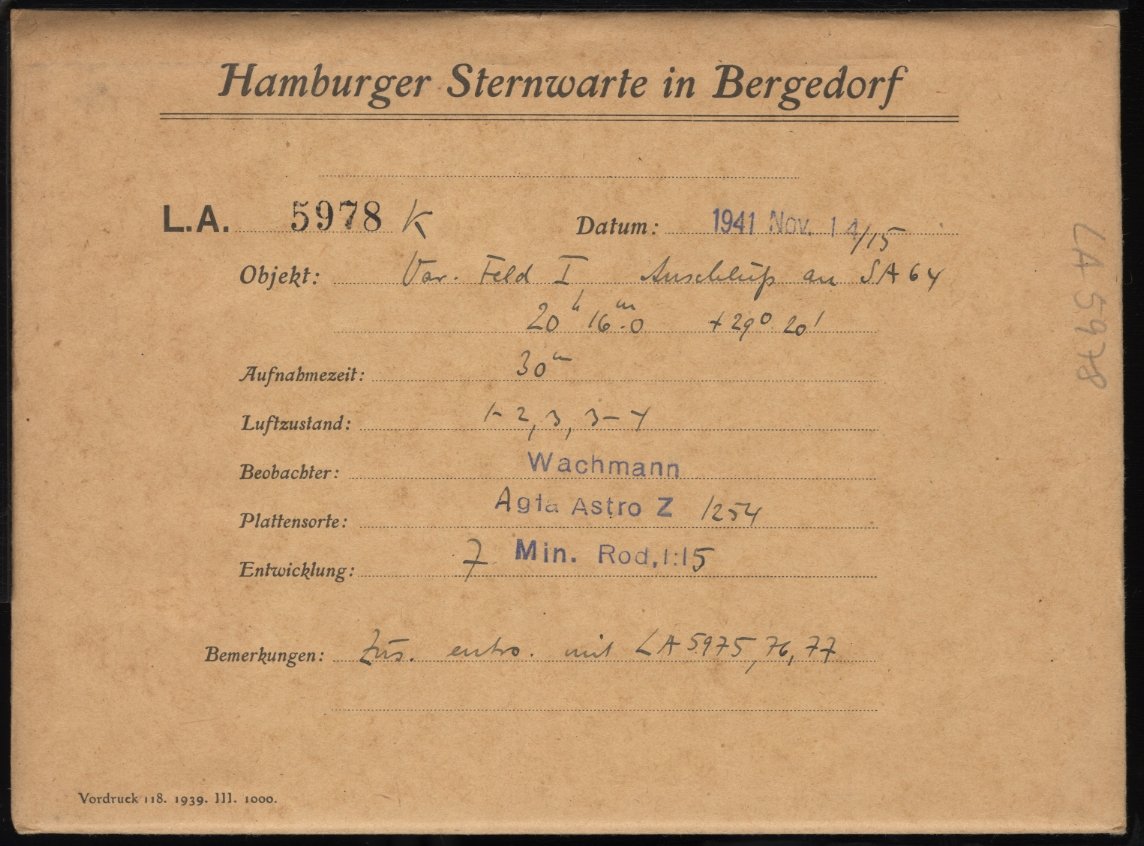 Hamburger Sternwarte in Bergedorf
L.A. 5978 K Datum: 1941 Nov. 14/15
Objekt: Var. Feld I, Anschluß an SA 64
20h 16m.0 +29° 20'
Aufnahmezeit: 30m
Luftzustand: 1-2, 3, 3-4
Beobachter: Wachmann
Plattensorte: Agfa Astro Z 1254
Entwicklung: 7 Min. Rod, 1:15
Bemerkungen: Zus. entw. mit LA 5975, 76, 77
Vordruck 118. 1939. III. 1000.
LA 5978